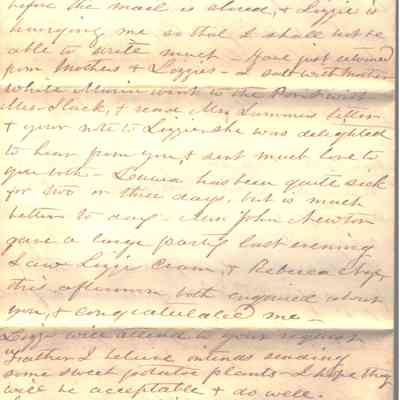 before the mail is closed, & Lizzie is
hurrying me so that I shall not be
able to write much - Have just returned
from Mothers & Lizzies - I sat with Mother
while Maria went to the Point with
Mrs Slack, & read Mrs Lummis letter
& your note to Lizzie, she was delighted
to hear from you, & sent much love to
you both - Louisa has been quite sick
for two or three days, but is much
better to day - Mrs John Newton
gave a large party last evening
I saw Lizzie & Rebecca
this afternoon, both enquired about
you, & congratulated me -
Lizzie will attend to your request
Father I believe intends sending
some sweet potatoe plants - I hope they
will be acceptable & do well.